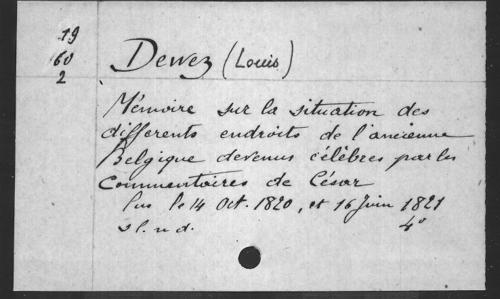 19
60
2
Dewez (Louis)
Mémoire sur la situation des
differents endroits de l'ancienne
Belgique devenus célèbres par les
Commentaires de César
lus le 14 Oct. 1820, et 16 Juin 1821
s l. n d. 4°